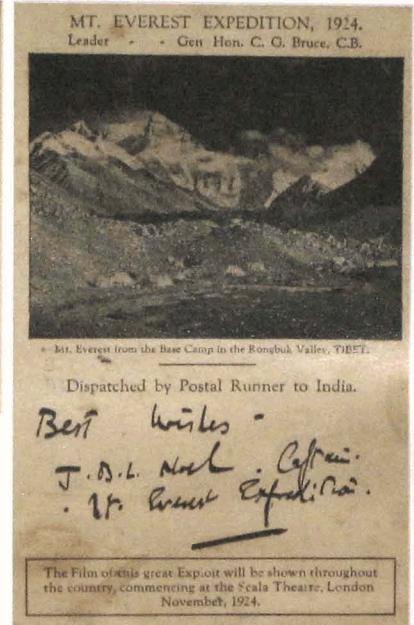 MT. EVEREST EXPEDITION, 1924.
Leader - - Gen Hon. C. G. Bruce, C.B.
Mt. Everest from the Base Camp in the Rongbuk Valley, TIBET.
Dispatched by Postal Runner to India.
Best wishes -
J.B.L. Noel. Captain.
Mt. Everest Expedition.
The Film of this great Exploit will be shown throughout
the country, commencing at the Scala Theatre, London
November, 1924.